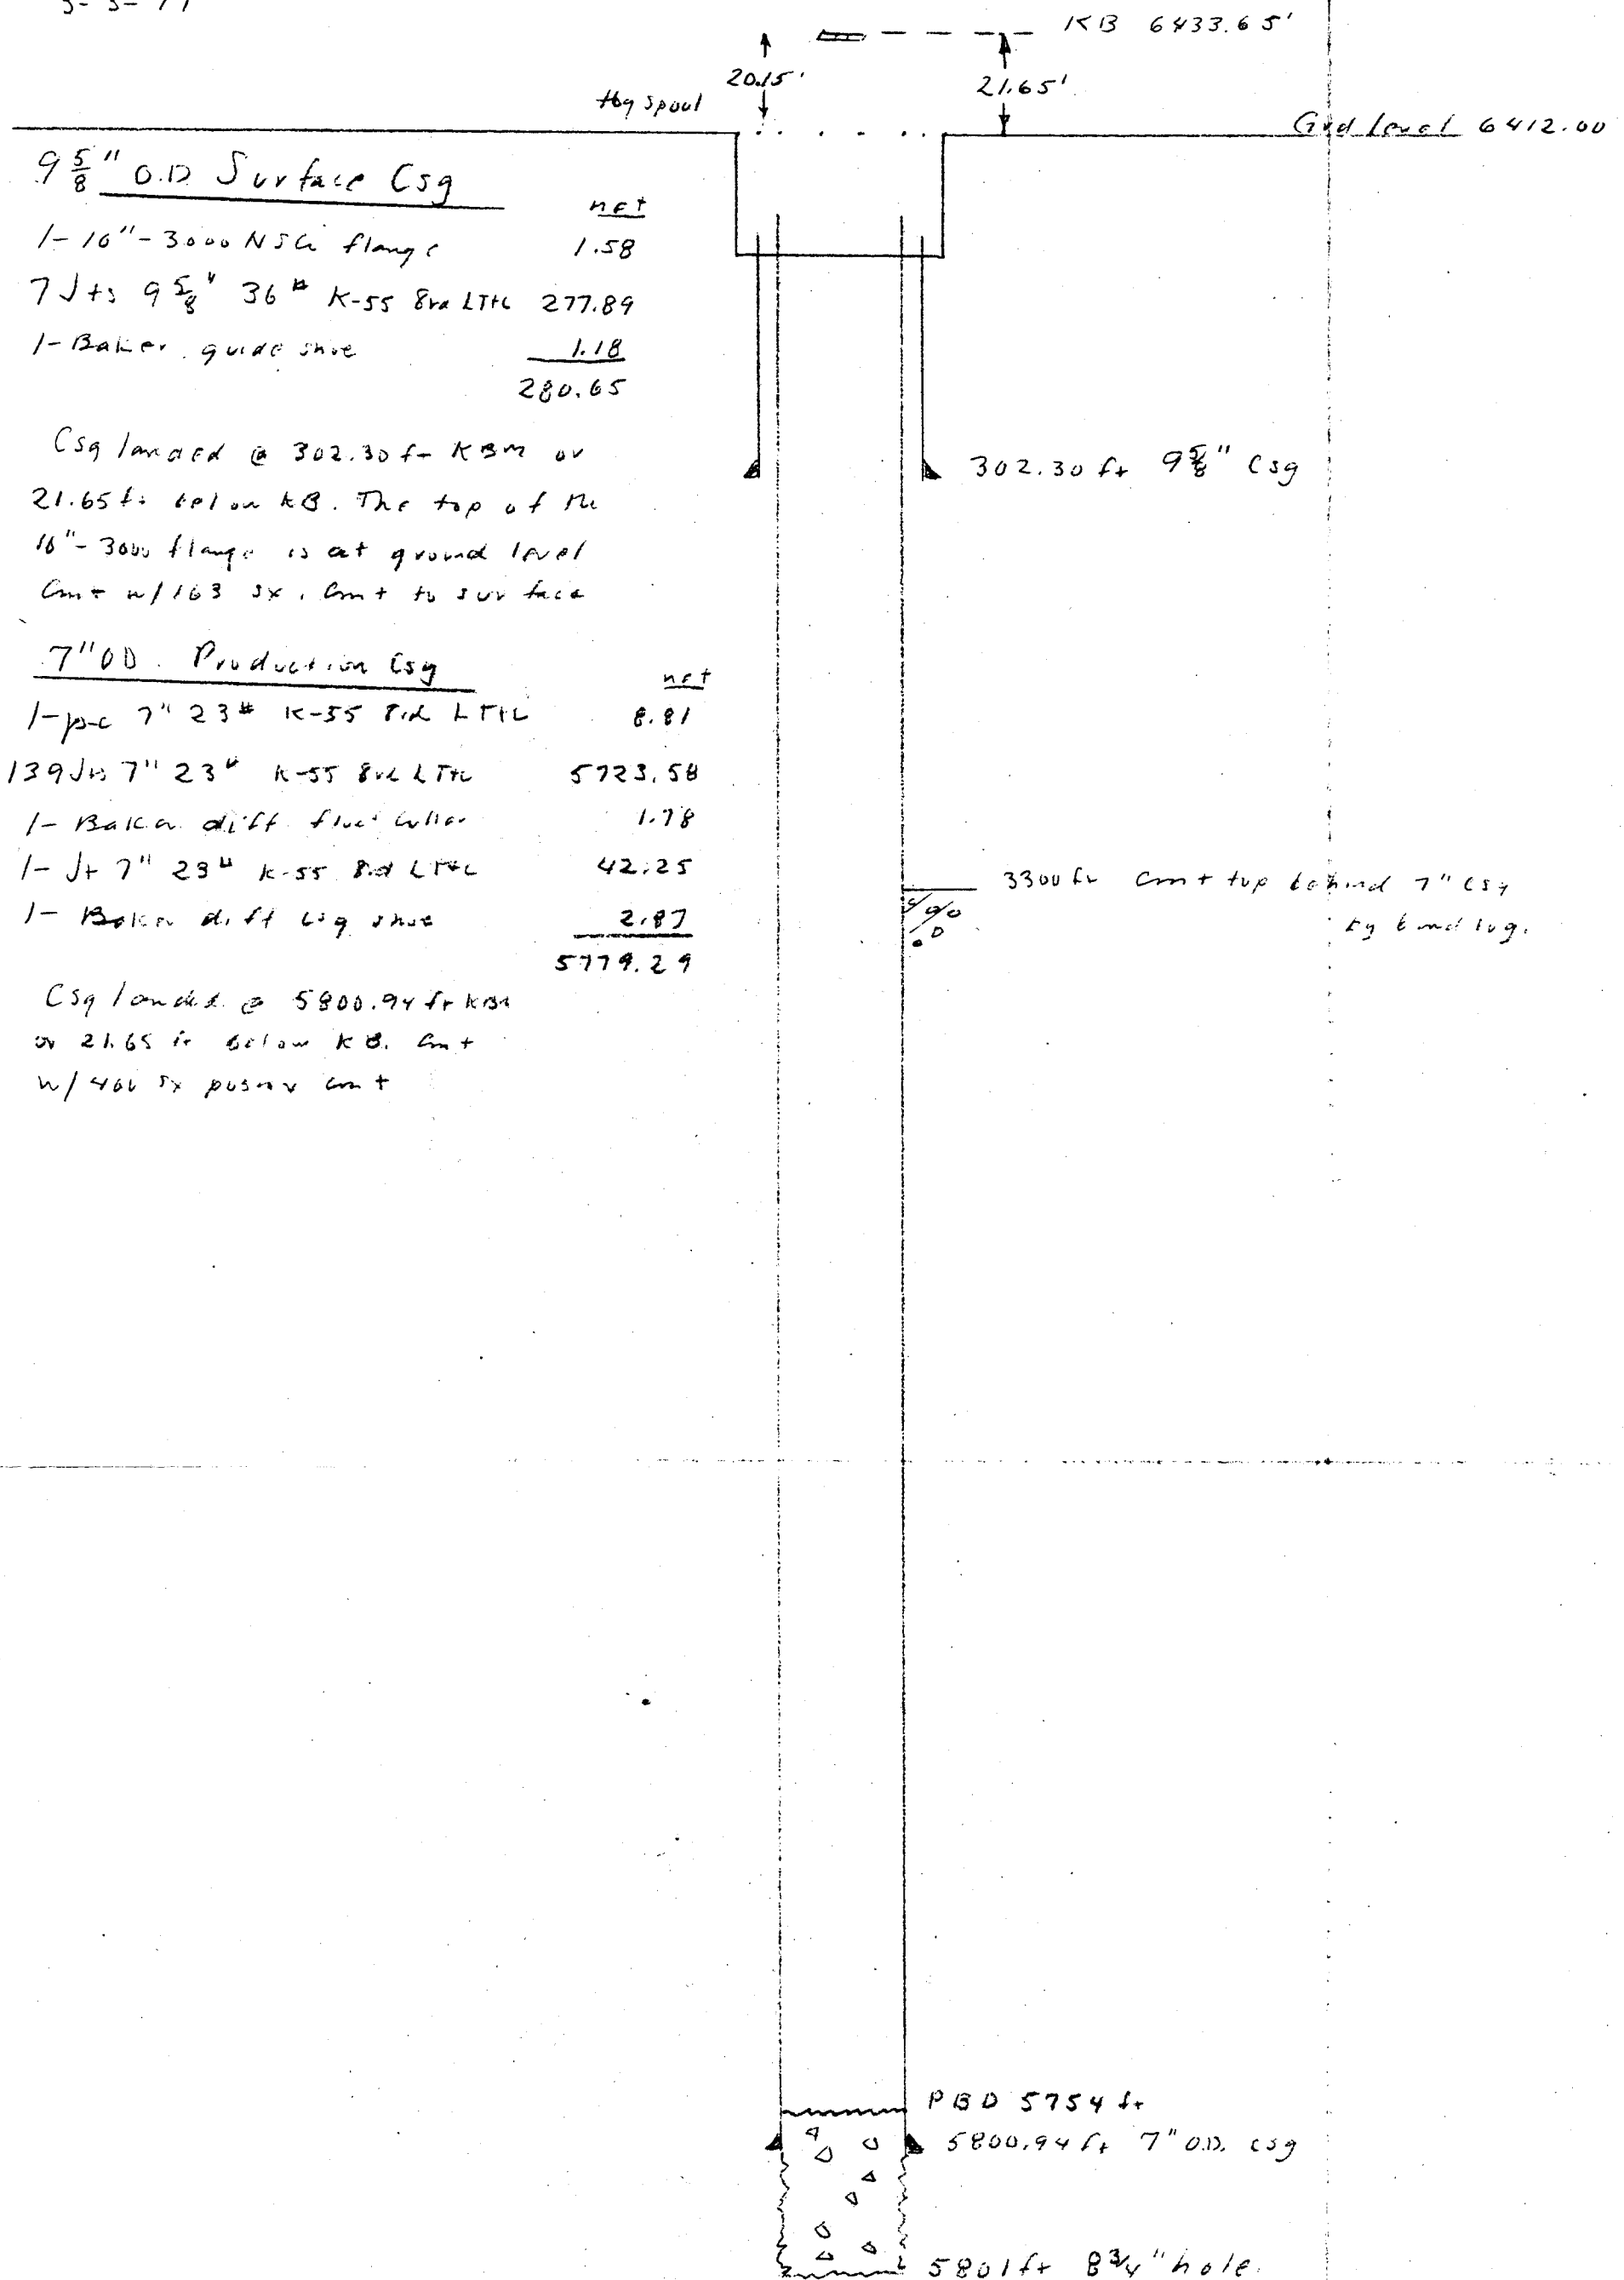 KB 6433.65'
20.15'
21.65'
tbg spool
Grd level 6412.00
9 5/8" O.D. Surface Csg
net
1- 10"-3000 NSCo flange 1.58
7 Jts 9 5/8" 36# K-55 8rd LT&C 277.89
1- Baker guide shoe 1.18
280.65
Csg landed @ 302.30 ft KBM or
21.65 ft below KB. The top of the
10"-3000 flange is at ground level
Cmt w/163 sx. Cmt to surface
302.30 ft 9 5/8" Csg
7" OD. Production Csg
net
1-pc 7" 23# K-55 8rd LT&C 8.81
139 Jts 7" 23# K-55 8rd LT&C 5723.58
1- Baker diff float collar 1.78
1- Jt 7" 23# K-55 8rd LT&C 42.25
1- Baker diff csg shoe 2.87
5779.29
Csg landed @ 5800.94 ft KBM
or 21.65 ft below KB. Cmt
w/ 460 sx cmt
3300 ft Cmt top behind 7" csg
by bond log.
PBD 5754 ft
5800.94 ft 7" O.D. csg
5801 ft 8 3/4" hole.